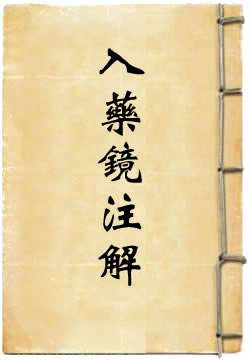 入藥鏡注解